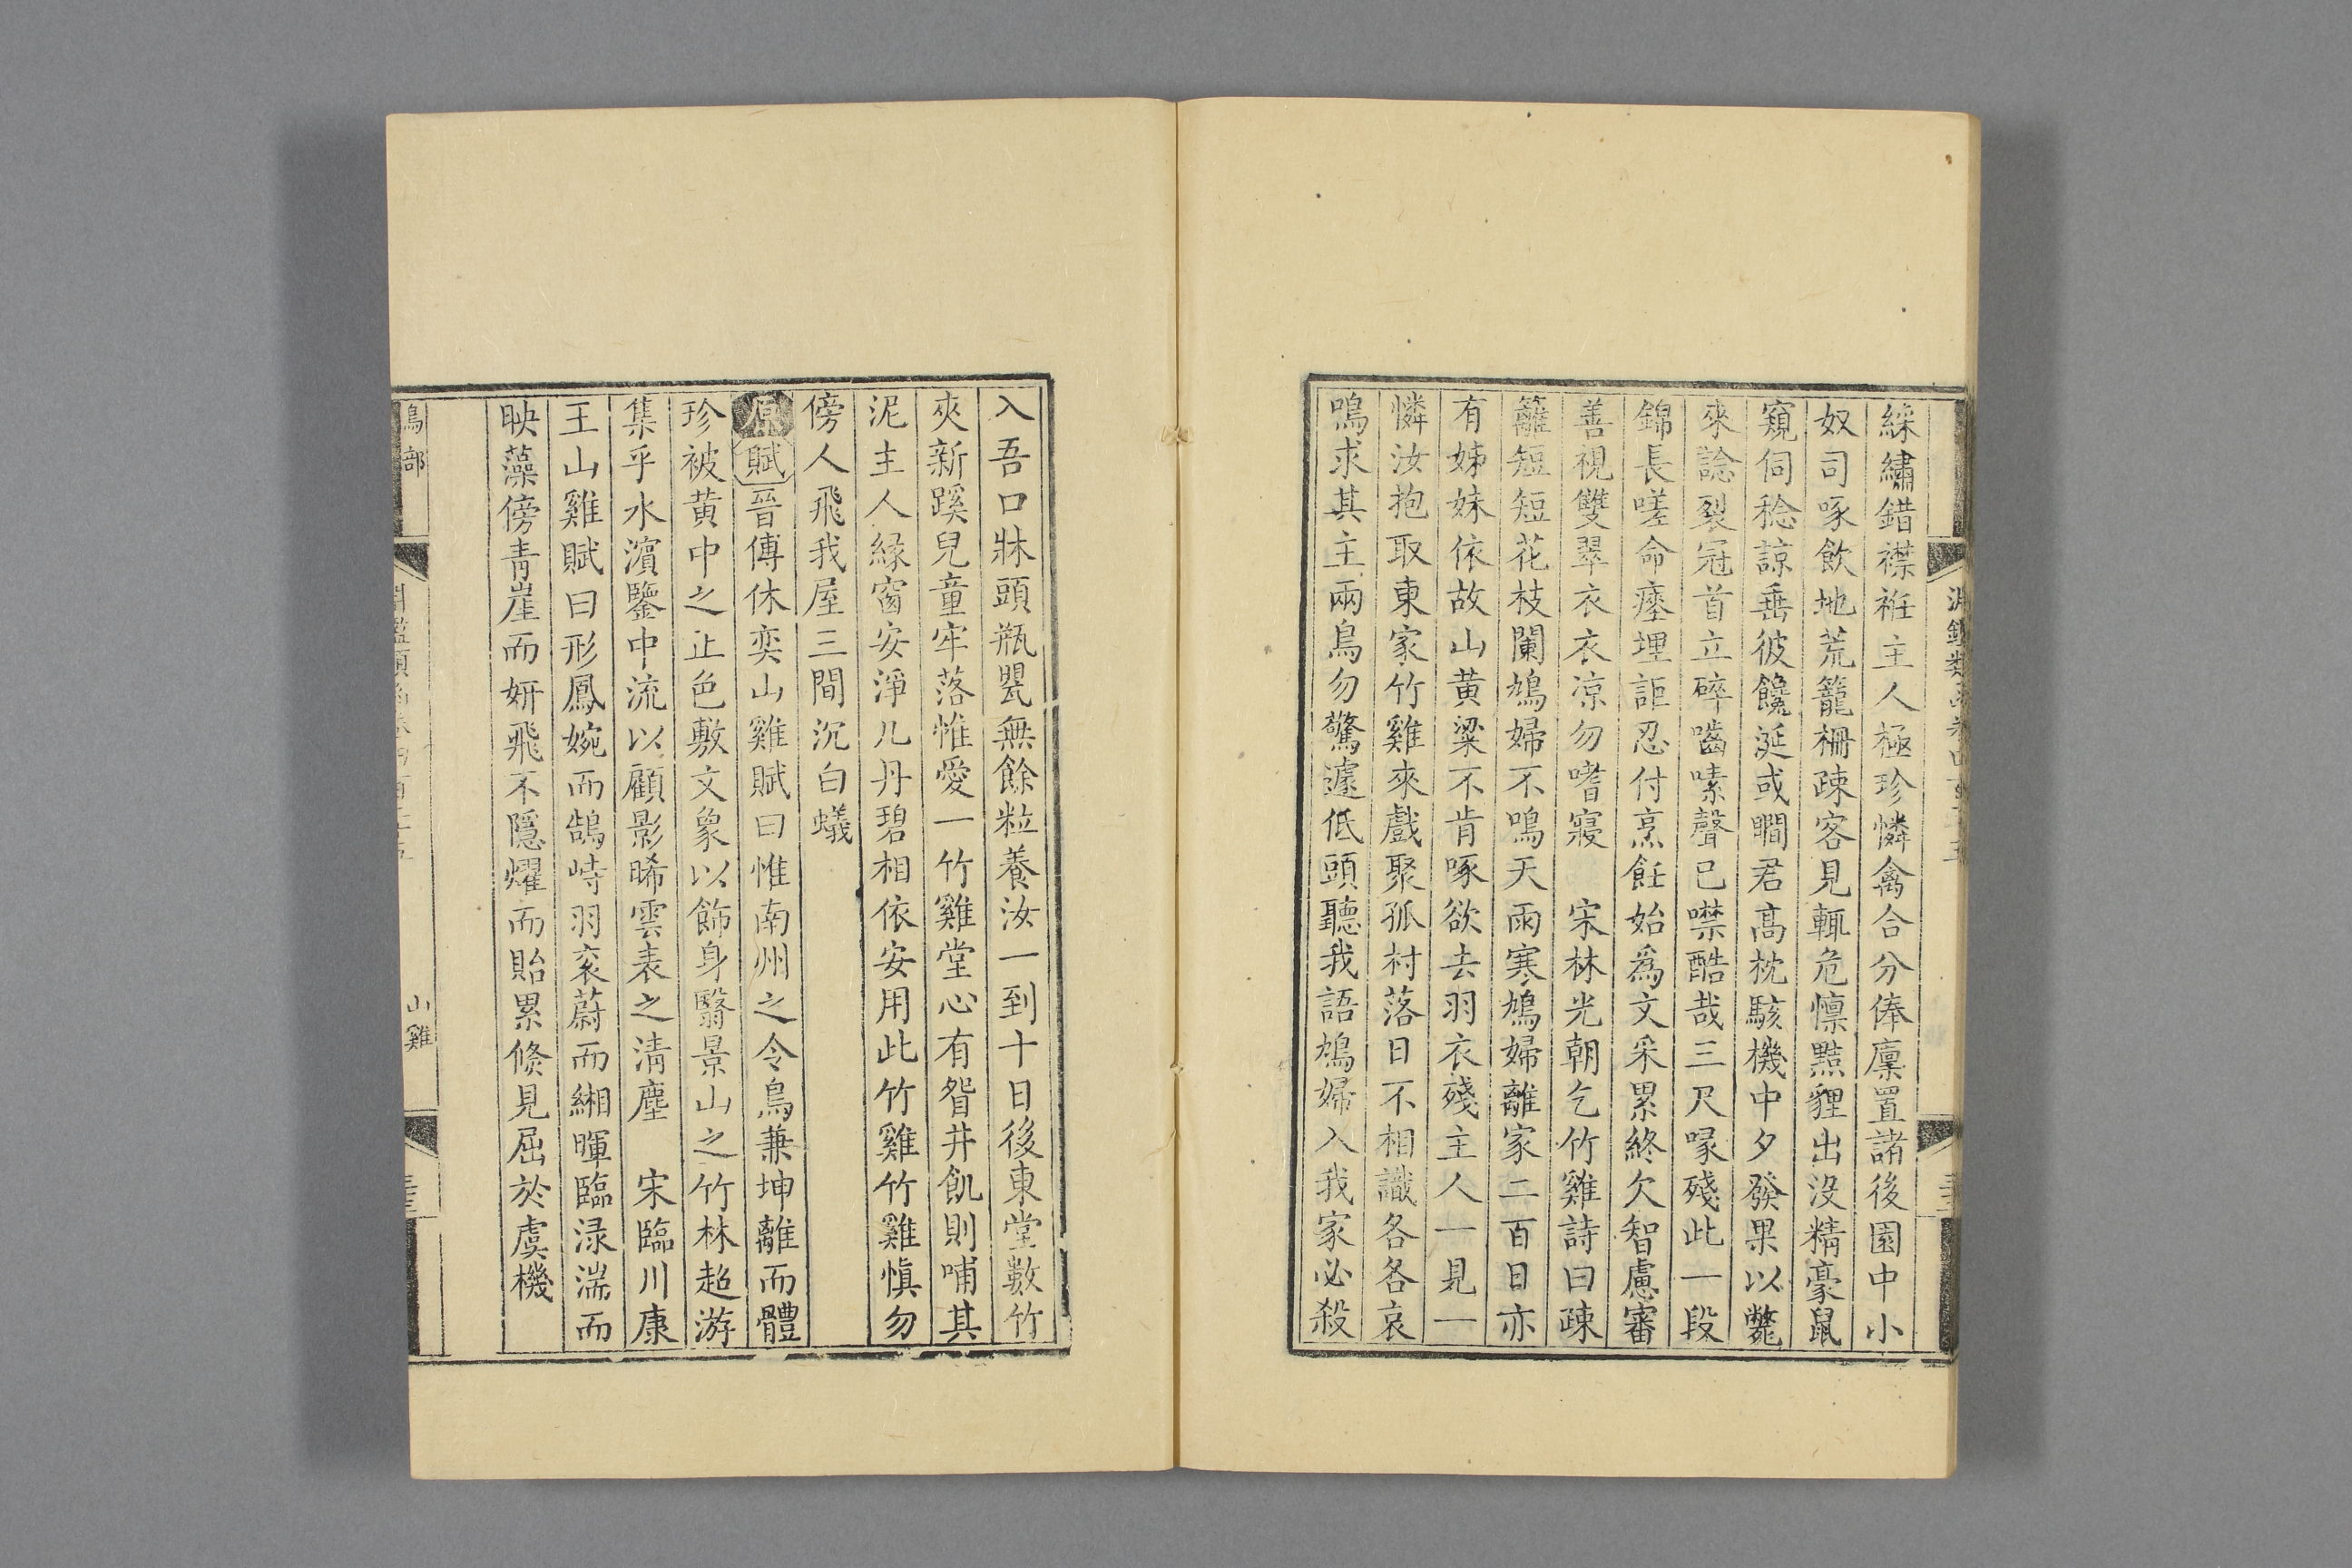 綵繡錯襟袵主人極珍憐禽合分俸廩置諸後園中小
奴司啄飲地荒籠柵疎客見輒危懍黠貍出沒精豪鼠
窺伺稔諒垂彼饞涎或瞷君高枕駭機中夕發果以斃
來諗裂冠首立碎嚙嗉聲已噤酷哉三尺喙殘此一段
錦長嗟命瘞埋詎忍付烹飪始爲文采累終欠智慮審
善視雙翠衣衣凉勿嗜寢　宋林光朝乞竹雞詩曰疎
籬短短花枝闌鳩婦不鳴天雨寒鳩婦離家二百日亦
有姊妹依故山黄粱不肯啄欲去羽衣殘主人一見一
憐汝抱取東家竹雞來戲聚孤村落日不相識各各哀
鳴求其主兩鳥勿驚遽低頭聽我語鳩婦入我家必殺
入吾口牀頭瓶甖無餘粒養汝一到十日後東堂數竹
夾新蹊兒童牢落惟愛一竹雞堂心有眢井飢則哺其
泥主人緣窗安淨几丹碧相依安用此竹雞竹雞愼勿
傍人飛我屋三間沉白蟻
原賦晉傅休奕山雞賦曰惟南州之令鳥兼坤離而體
珍被黄中之正色敷文象以飾身翳景山之竹林超游
集乎水濱鑒中流以顧影晞雲表之淸塵　宋臨川康
王山雞賦曰形鳳婉而鵠峙羽衮蔚而緗暉臨渌湍而
映藻傍靑崖而妍飛不隱燿而貽累倏見屈於虞機
鳥部
山雞